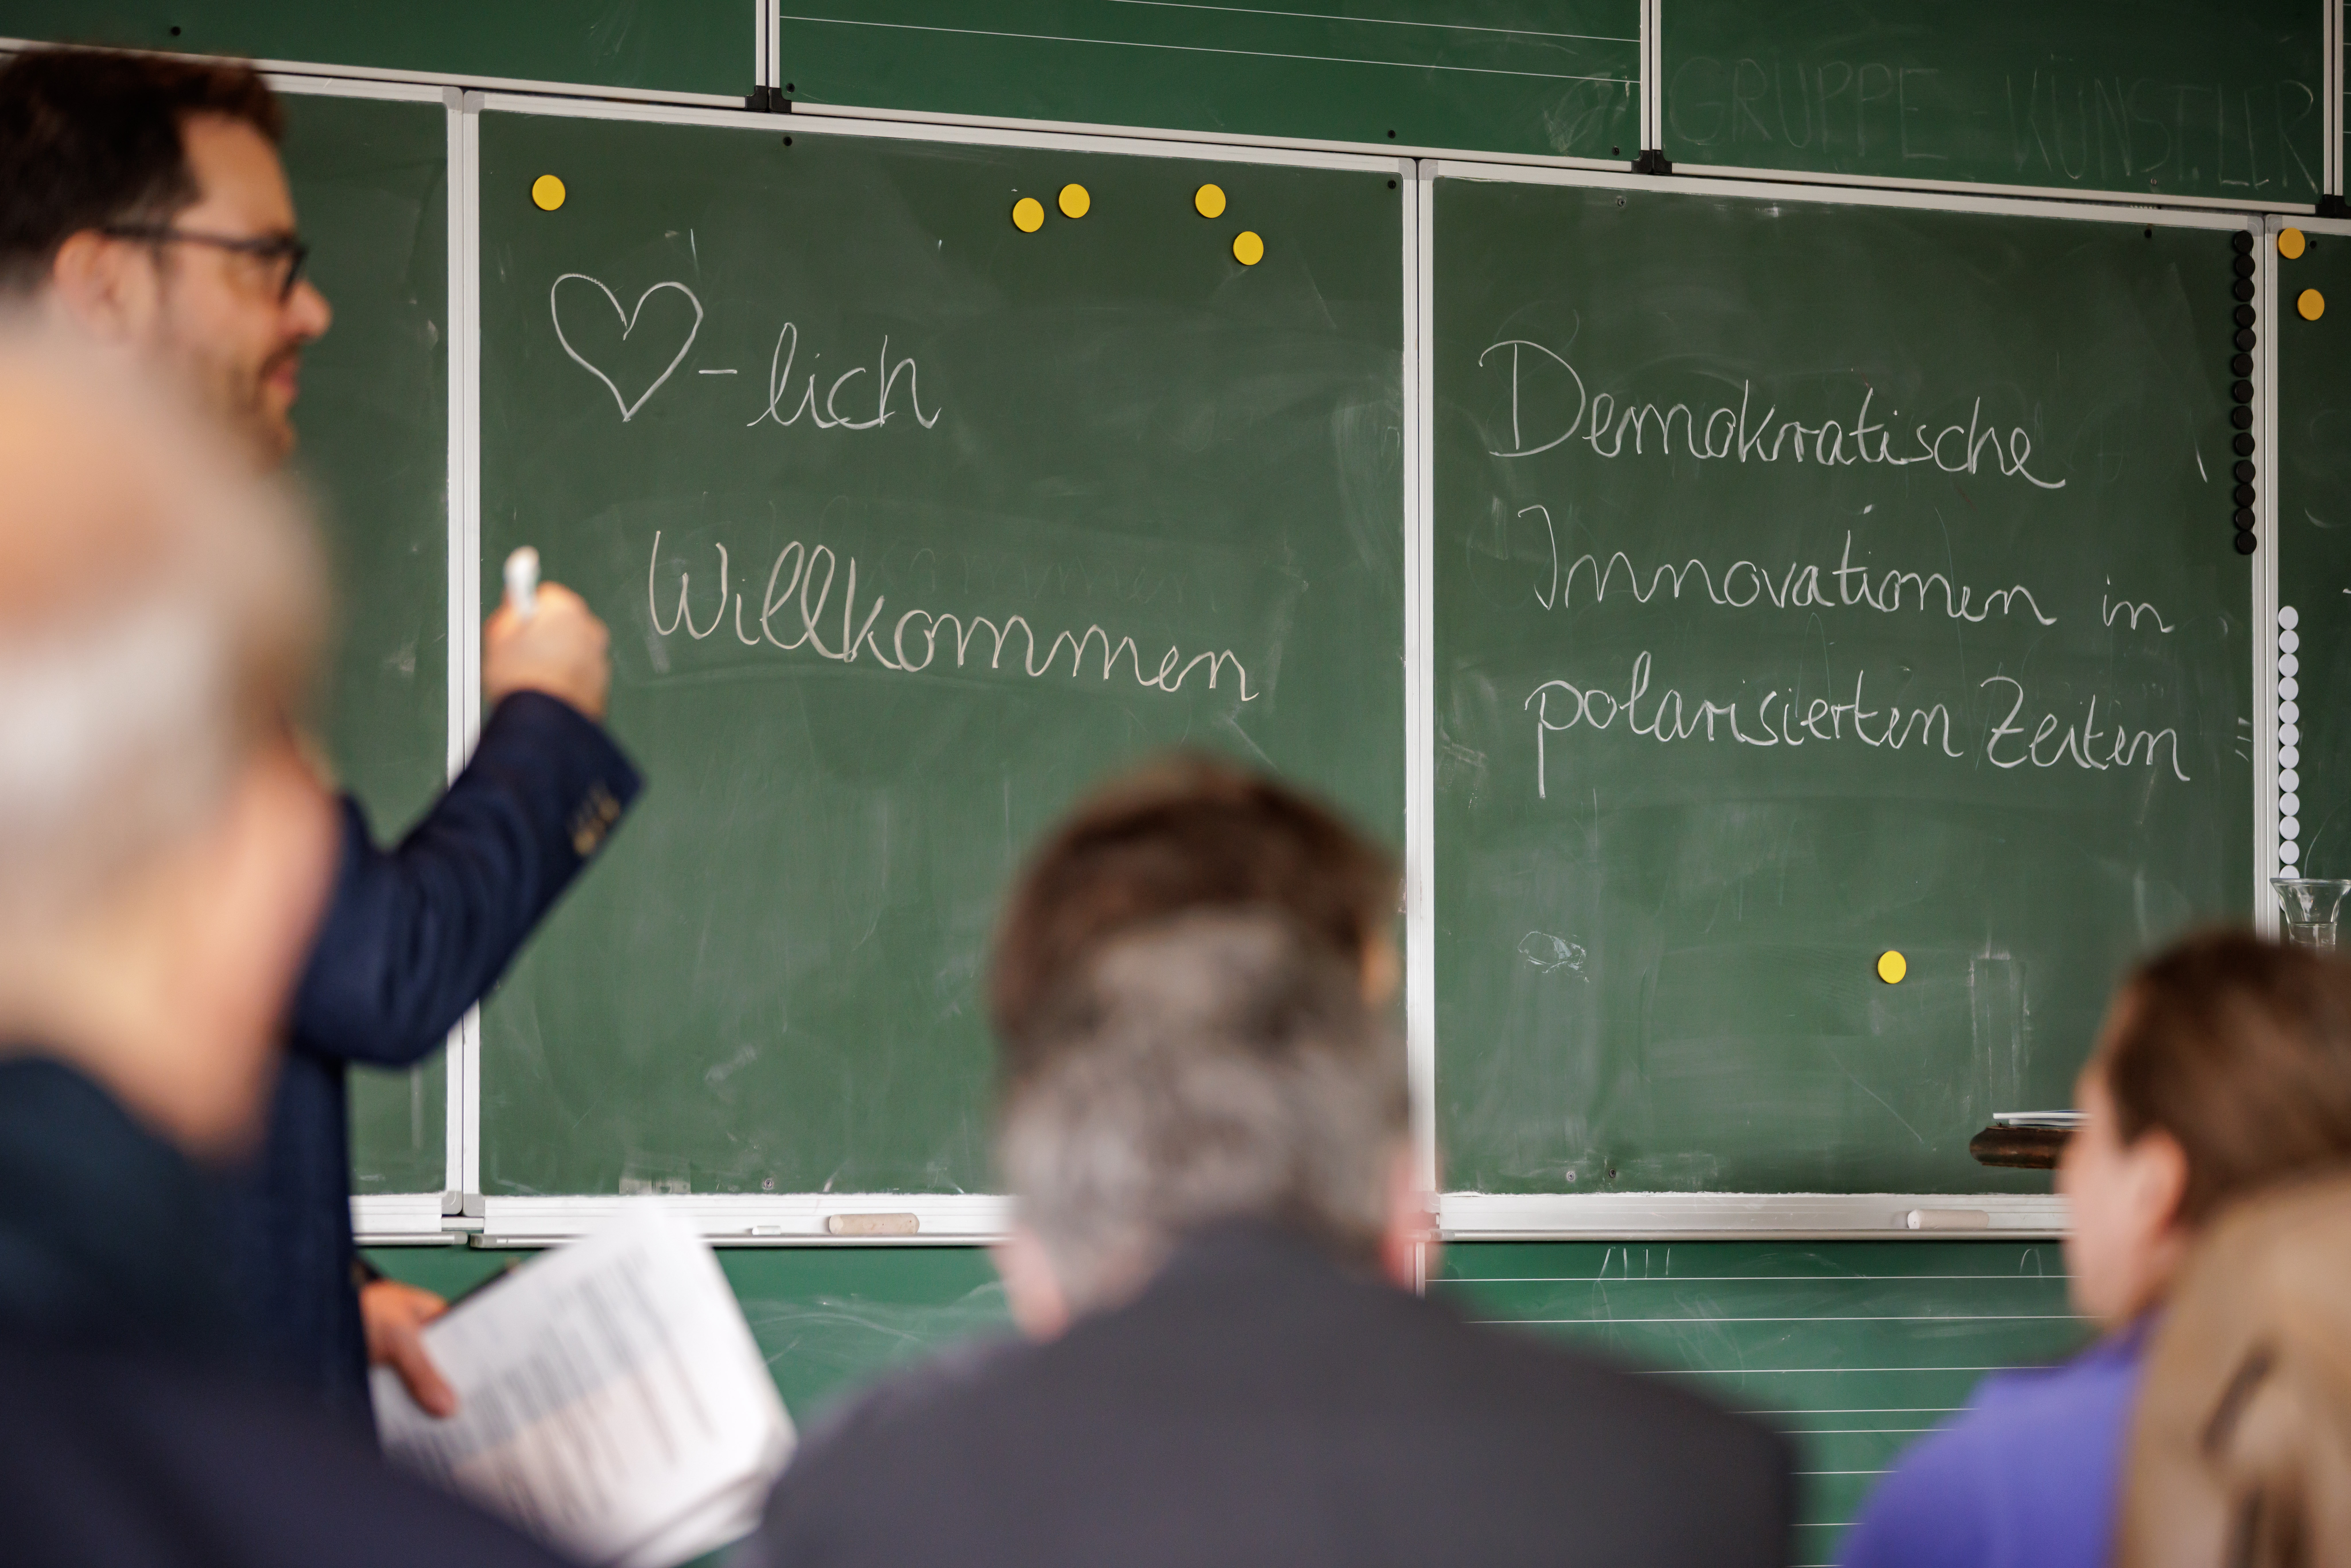 GRUPPE - KÜNSTLER
♡-lich
Willkommen
Demokratische
Innovationen in
polarisierten Zeiten